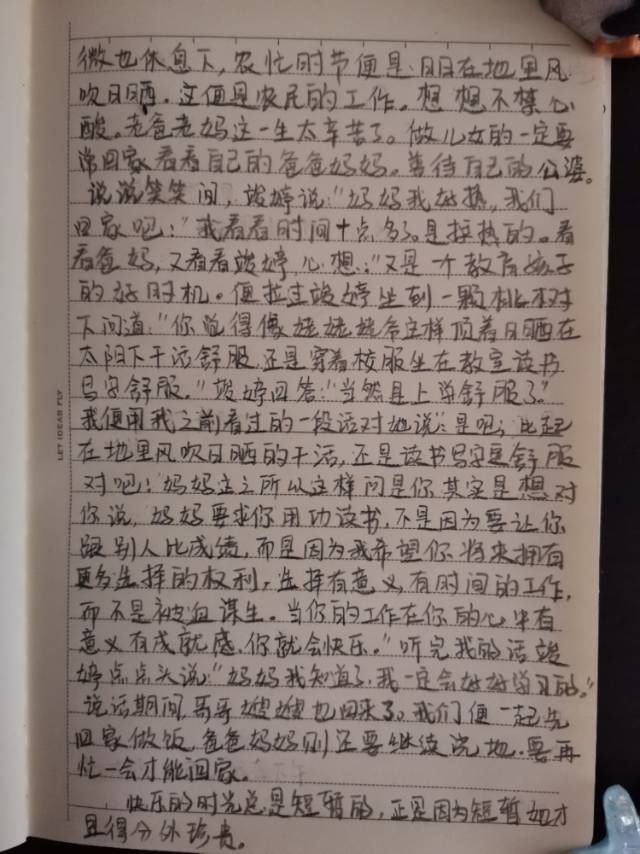 微也休息下，农忙时节便是日日在地里风
吹日晒。这便是农民的工作。想想不禁心
酸。老爸老妈这一生太辛苦了。做儿女的一定要
常回家看看自己的爸爸妈妈。善待自己的公婆。
说说笑笑间，婷说："妈妈我好热，我们
回家吧！"我看看时间十点多了。是挺热的。看
看爸妈，又看看婷，心想："又是一个教育孩子
的好时机。便拉过婷坐到一颗桃树
下问道："你觉得像姥姥姥爷这样顶着日晒在
太阳下干活舒服，还是穿着校服坐在教室读书
写字舒服。"婷回答："当然是上学舒服了"
我便用我之前看过的一段话对她说："是吧，比起
在地里风吹日晒的干活，还是读书写字更舒服
对吧！妈妈之所以这样问是你其实是想对
你说，妈妈要求你用功读书，不是因为要让你
跟别人比成绩，而是因为我希望你将来拥有
更多选择的权利，选择有意义，有时间的工作，
而不是被迫谋生。当你的工作在你的心中有
意义有成就感，你就会快乐。"听完我的话
婷点点头说："妈妈我知道了，我一定会好好学习的。"
说话期间，哥哥嫂嫂也回来了。我们便一起先
回家做饭，爸爸妈妈则还要继续浇地。要再
忙一会才能回家。
快乐的时光总是短暂的，正是因为短暂如才
显得分外珍贵。
LET IDEAS FLY